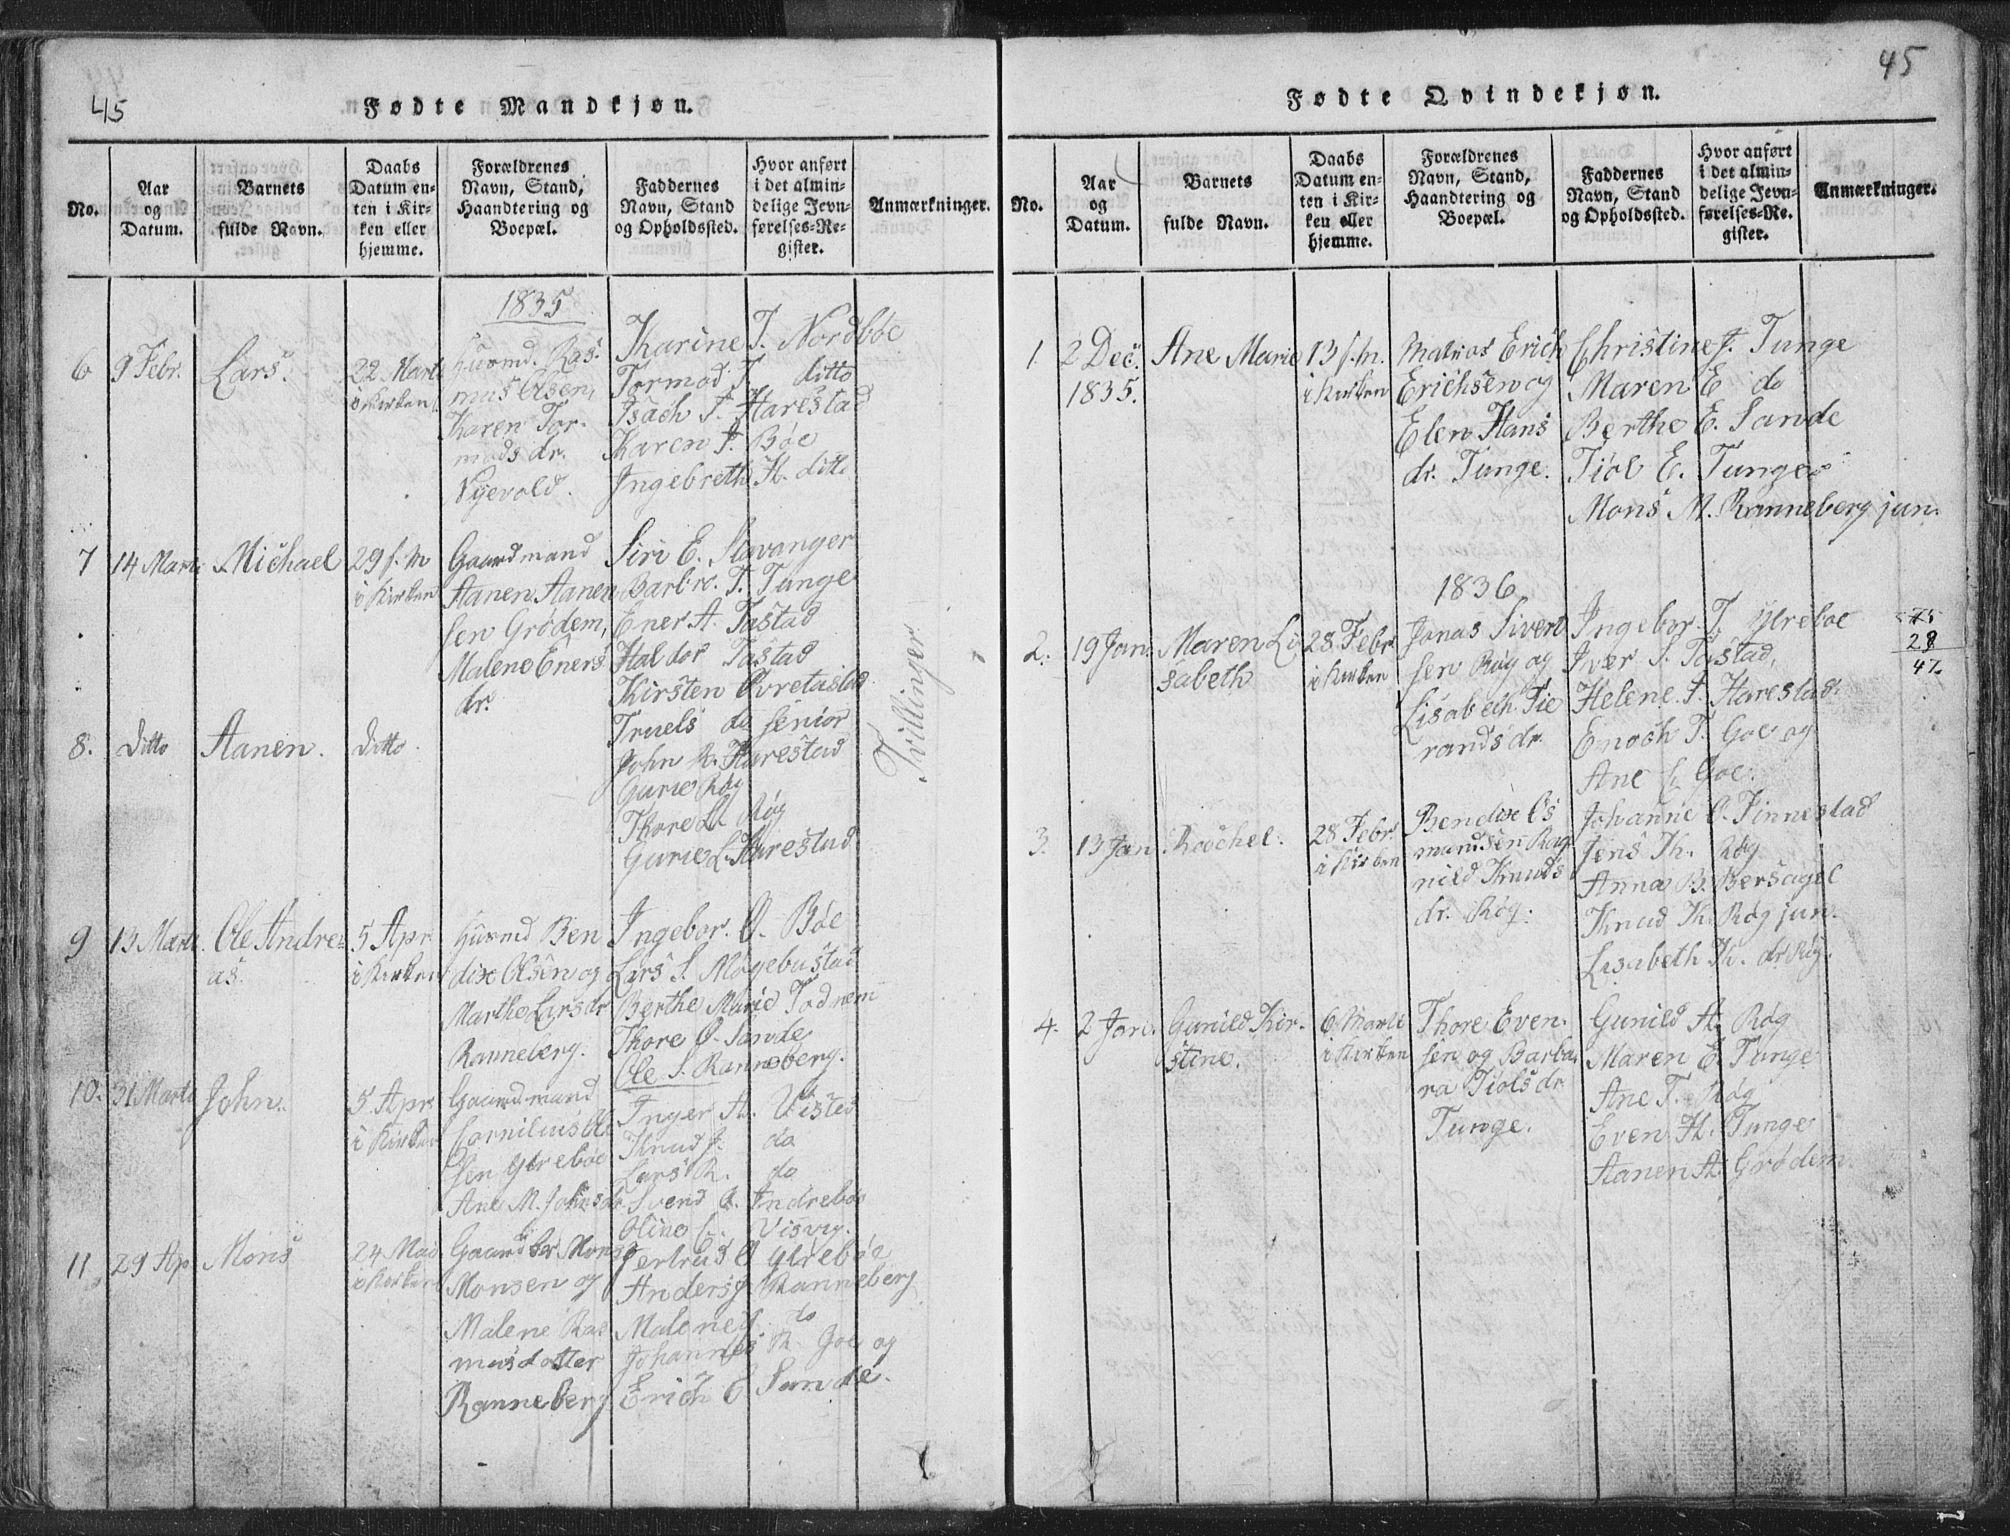 45
Fødte Mandkjøn.
No.
Aar
og
Datum.
Barnets
fulde Navn.
Daabs
Datum en-
ten i Kir-
ken eller
hjemme.
Forældrenes
Navn, Stand,
Haandtering og
Boepæl.
Faddernes
Navn, Stand
og Opholdssted.
Hvor anført
i det almin-
delige Jevn-
førelses-Re-
gister.
Anmærkninger.
1835
6
9 Febr.
Lars.
22 Marti
i Kirken
Huusmd. Ras-
mus Olsen,
Karen Tor-
mods dr.
Karine T. Nordbøe
Tormod T. ditto
Isach T. Harestad
Karen J. Bøe
Ingebreth H. ditto
7
14 Marti
Michael
29 f. m
i Kirken
Gaardmand
Aanen Aanen
sen Grødem,
Malene Eners
dr.
Siri E. Stavanger
T. Tunge
Ener A. Tastad
Haldor Tastad
Kirsten Øvretastad
Truels do senior
John R. Harestad
Gurie Røg
Thore Røg
Gurie L. Harestad
8.
Ditto
Aanen.
Ditto.
Tvillinger
9
13 Marti
Ole Andre-
as.
5 Apr
i Kirken
Huusmd Ben
dix Olsen og
Marthe Larsdr
Ranneberg.
Ingebor. O. Bøe
Lars S. Møgebustad
Berthe Marie Todnem
Thore O. Sande
Ole S. Ranneberg.
10.
31 Marti
John.
5 Apr
i Kirken
Gaardmand
Cornilius Ol
sen Ytrebøe
Ane M. Johnsdr
Inger A. Visted
Knud J. do
Lars R. do
Svend R. Indrebøe
Oline C. Visvig.
11
29 Ap
Mons
24 Mai
i Kirken
Gaardbr Mons
Monsen og
Malene Ras
musdatter
Ranneberg
Gertrud O Ytrebøe
Anders J Ranneberg
Malene J do
Johannes R. Goe og
Erich E Sande.
45
Fødte Qvindekjøn.
No.
Aar
og
Datum.
Barnets
fulde Navn.
Daabs
Datum en-
ten i Kir-
ken eller
hjemme.
Forældrenes
Navn, Stand,
Haandtering og
Boepæl.
Faddernes
Navn, Stand
og Opholdssted.
Hvor anført
i det almin-
delige Jevn-
førelses-Re-
gister.
Anmærkninger.
1
2 Dec.
1835.
Ane Marie
13 f. m.
i Kirken
Erich
Erichsen og
Elen Hans
dr. Tunge.
Christine J. Tunge
Maren E do
Berthe E. Sande
Tiøl E. Tunge
Mons M. Ranneberg jun.
1836
2.
19 Jan.
Maren Li
sabeth
28 Febr
i Kirken
Jonas Sivert
sen Røg og
Lisabeth Tie
rands dr.
Ingebor. T. Ytrebøe
Iver S. Tastad,
Helene J. Harestad.
Enoch T. Goe og
Ane Goe.
75
28
47
3.
13 Jan
Rachel.
28 Febr.
i Kirken
Bendix As
mundsen Rag
nild Knuds
dr. Røg.
Johanne O. Finnestad
Jens Th. Røg
Anna B. Bersagel
Knud K. Røg jun.
Lisabeth K. dr Røg.
4.
2 Jan.
Gunild Kir-
stine.
6 Marti
i Kirken
Thore Even-
sen og Barba
ra Tiølsdr
Tunge.
Gunild A. Røg
Maren E Tunge
Ane T. Røg
Even H. Tunge
Aanen A. Grødem